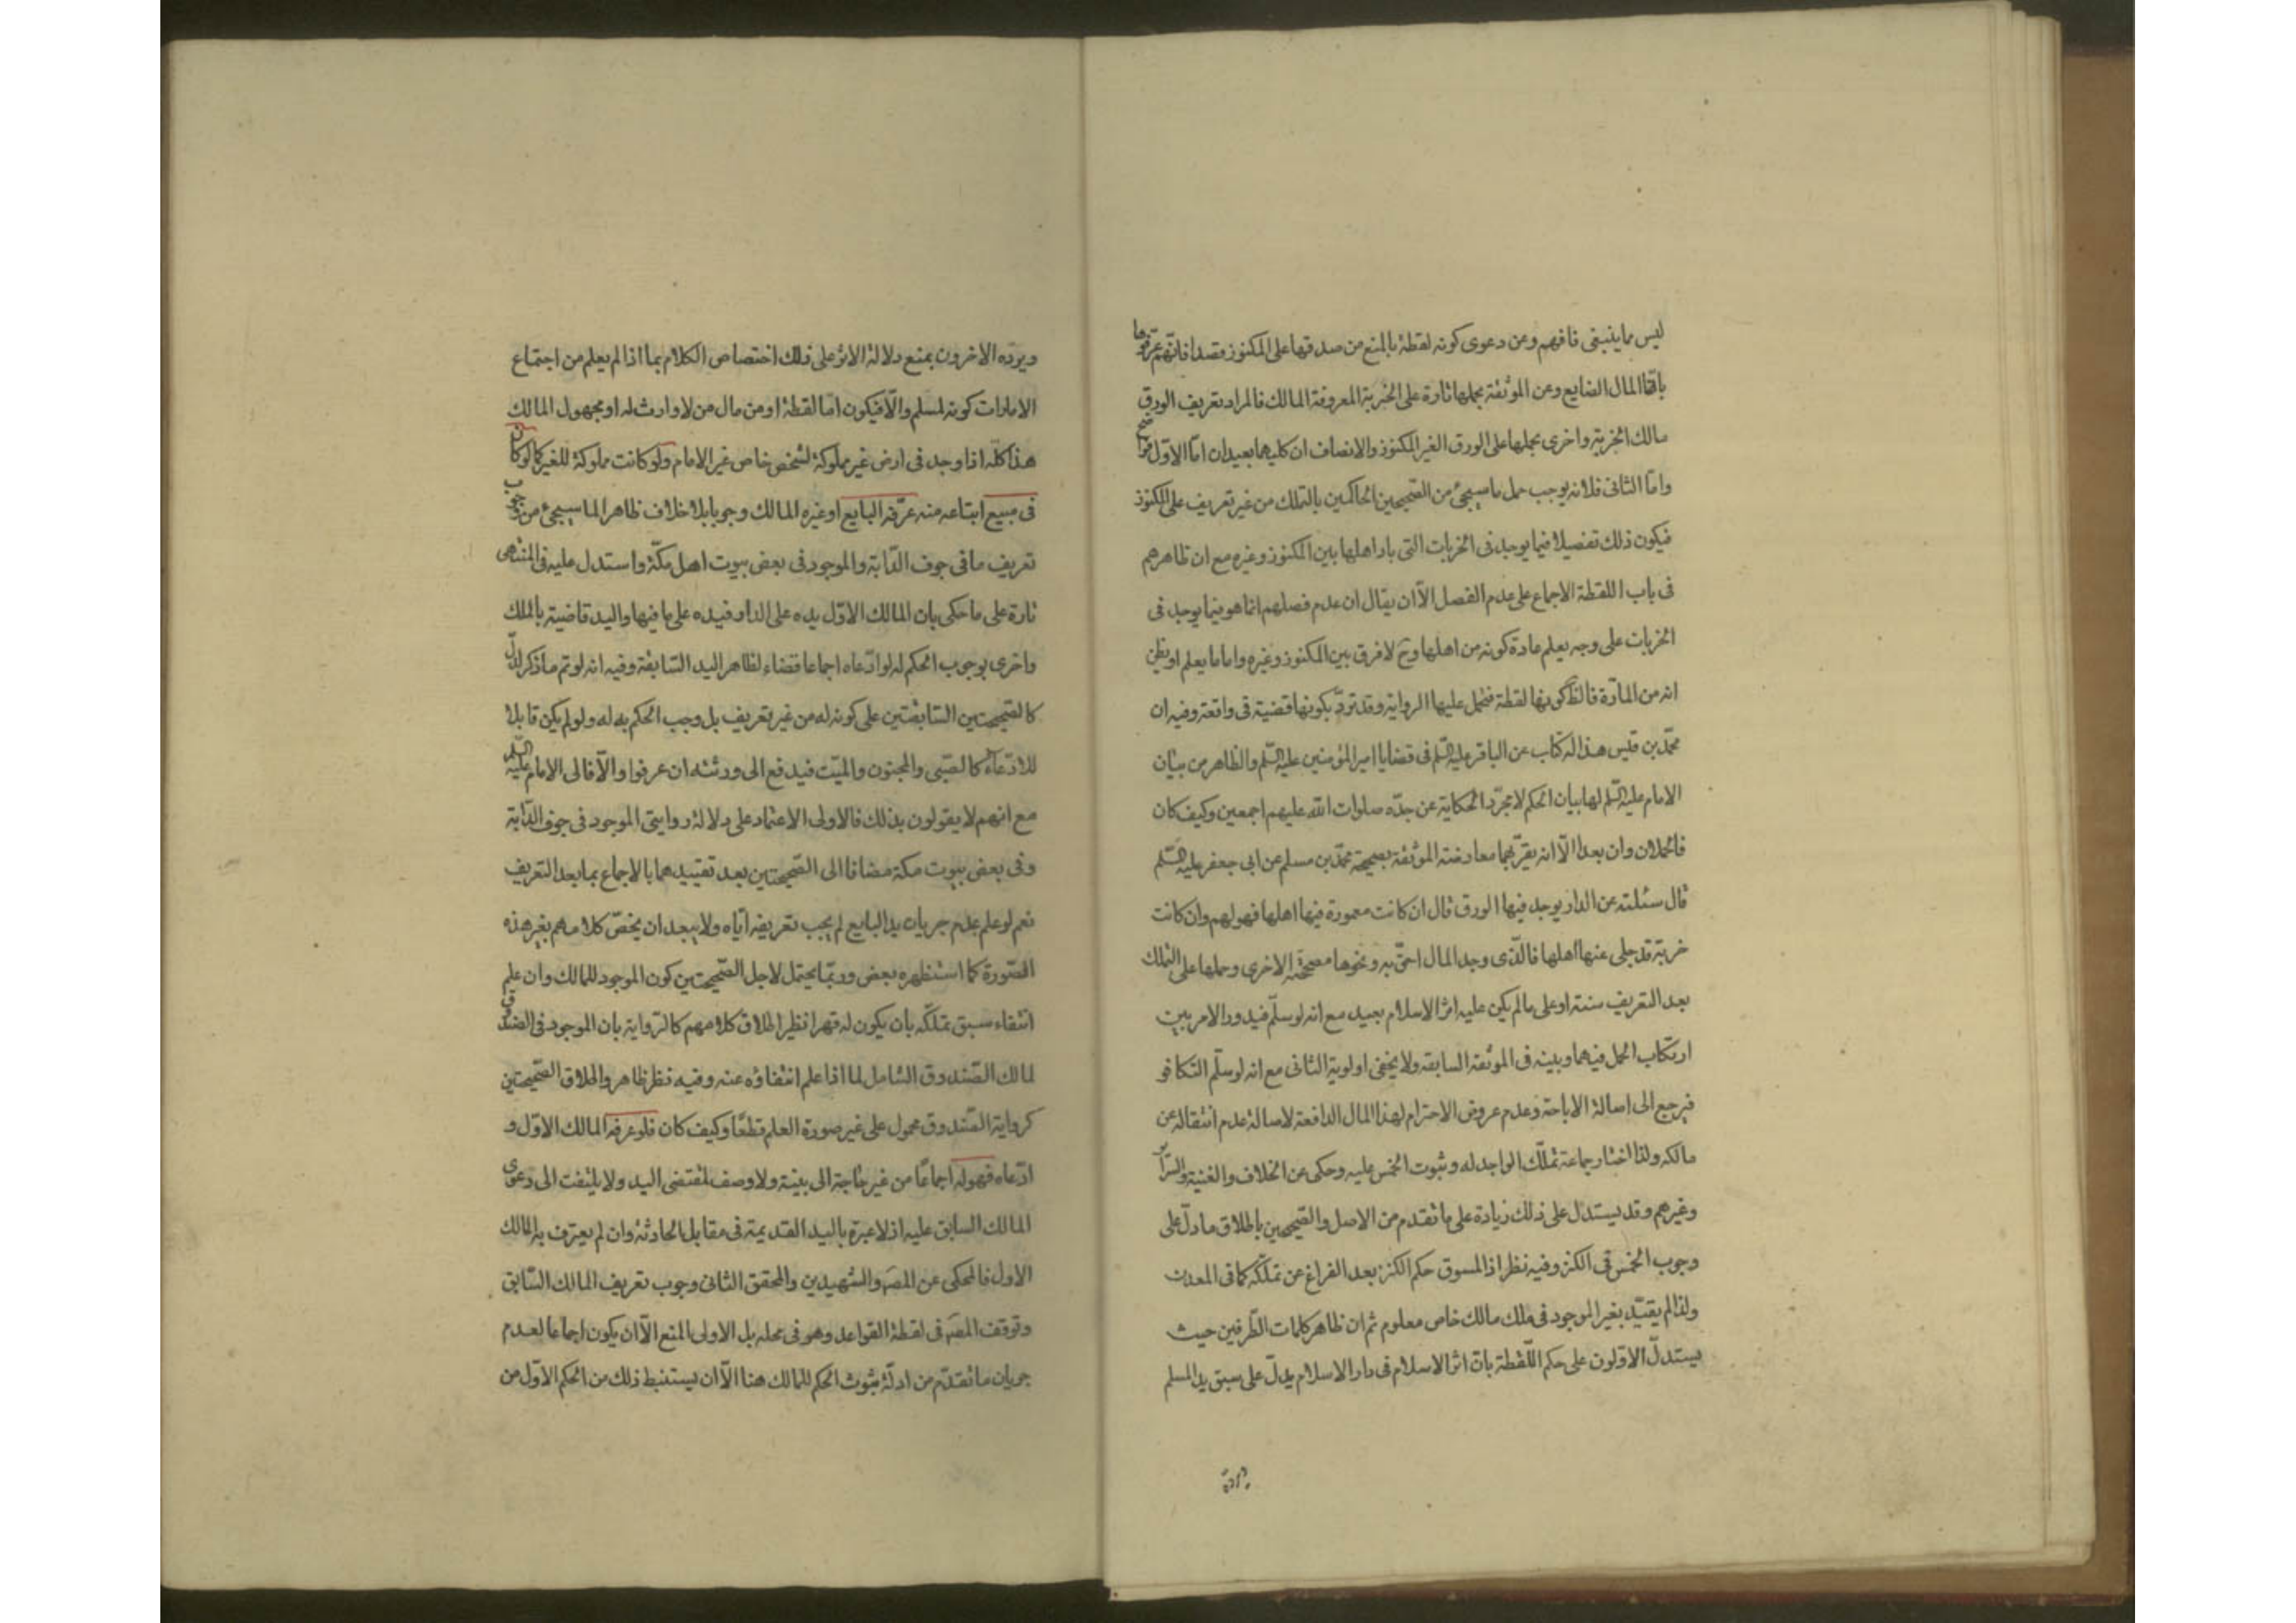 ليس مما ينبغى فافهم وعن دعوى كونه لقطة بالمنع من صدقها على المكنوز قصدا فانهم عرفوها
بانها المال الضايع وعن الموثقة بحملها تارة على الخربة المعروفة المالك فالمراد تعريف الورق
مالك الخربة واخرى بحملها على الورق الغير المكنوز والانصاف ان كليهما بعيدان امّا الاوّل فواضح
وامّا الثانى فلانه يوجب حمل ما سيجئ من الصّحيحين الحاكمين بالتملك من غير تعريف على المكنوز
فيكون ذلك تفصيلا فيما يوجد فى الخربات التى باد اهلها بين المكنوز وغيره مع ان ظاهرهم
فى باب اللقطة الاجماع على عدم الفصل الاّ ان يقال ان عدم فصلهم انما هو فيما يوجد فى
الخربات على وجه يعلم عادة كونه من اهلها وح لا فرق بين المكنوز وغيره واما ما يعلم او يظن
انه من المارّة فالظ كونها لقطة فتحمل عليها الرواية وقد تردّ بكونها قضية فى واقعة وفيه ان
محمّد بن قيس هذا له كتاب عن الباقر عليه السّلم فى قضايا امير المؤمنين عليه السّلم والظاهر من بيان
الامام عليه السّلم لها بيان الحكم لا مجرّد الحكاية عن جدّه صلوات الله عليهم اجمعين وكيف كان
فالحملان وان بعدا الاّ انه يقرّبهما معارضة الموثقة بصحيحة محمّد بن مسلم عن ابى جعفر عليه السّلم
قال سئلته عن الدار يوجد فيها الورق قال ان كانت معمورة فيها اهلها فهو لهم وان كانت
خربة قد جلى عنها اهلها فالّذى وجد المال احقّ به ونحوها صحيحته الاخرى وحملها على التملك
بعد التعريف سنة او على ما لم يكن عليه اثر الاسلام بعيد مع انه لو سلّم فيدور الامر بين
ارتكاب الحمل فيهما وبينه فى الموثقة السابقة ولا يخفى اولوية الثانى مع انه لو سلّم التكافؤ
فيرجع الى اصالة الاباحة وعدم عروض الاحترام لهذا المال الدافعة لاصالة عدم انتقاله عن
مالكه ولذا اختار جماعة تملّك الواجد له وثبوت الخمس عليه وحكى عن الخلاف والغنية والسّرائر
وغيرهم وقد يستدل على ذلك زيادة على ما تقدم من الاصل والصّحيحين باطلاق ما دلّ على
وجوب الخمس فى الكنز وفيه نظر اذ المسوق حكم الكنز بعد الفراغ عن تملّكه كما فى المعدن
ولذا لم يقيّد بغير الموجود فى ملك مالك خاص معلوم ثم ان ظاهر كلمات الطّرفين حيث
يستدلّ الاوّلون على حكم اللّقطة بانّ اثر الاسلام فى دار الاسلام يدلّ على سبق يد المسلم
ويردّه الاخرون بمنع دلالة الاثر على ذلك اختصاص الكلام بما اذا لم يعلم من اجتماع
الامارات كونه لمسلم والاّ فيكون امّا لقطة او من مال من لا وارث له او مجهول المالك
هذا كلّه اذا وجد فى ارض غير مملوكة لشخص خاص غير الامام ولو كانت مملوكة للغير كما لو كان
فى مبيع ابتاعه منه عرّفه البايع او غيره المالك وجوبا بلا خلاف ظاهر لما سيجئ من وجوب
تعريف ما فى جوف الدّابّة والموجود فى بعض بيوت اهل مكّة واستدل عليه فى المنتهى
تارة على ما حكى بان المالك الاوّل يده على الدار فيده على ما فيها واليد قاضية بالملك
واخرى بوجوب الحكم له لو ادّعاه اجماعا قضاء لظاهر اليد السّابقة وفيه انه لو تم ما ذكر لدلّ
كالصّحيحتين السّابقتين على كونه له من غير تعريف بل وجب الحكم به له ولو لم يكن قابلا
للادّعاء كالصّبى والمجنون والميّت فيدفع الى ورثته ان عرفوا والاّ فالى الامام عليه السّلم
مع انهم لا يقولون بذلك فالاولى الاعتماد على دلالة روايتى الموجود فى جوف الدّابّة
وفى بعض بيوت مكة مضافا الى الصّحيحتين بعد تقييدهما بالاجماع بما بعد التعريف
نعم لو علم عدم جريان يد البايع لم يجب تعريفه ايّاه ولا يبعد ان يخصّ كلامهم بغير هذه
الصّورة كما استظهره بعض وربّما يحتمل لاجل الصّحيحتين كون الموجود للمالك وان علم
انتفاء سبق تملّكه بان يكون له قهرا نظير اطلاق كلامهم كالرّواية بان الموجود فى الصّندوق
لمالك الصّندوق الشامل لما اذا علم انتفاؤه عنه وفيه نظر ظاهر واطلاق الصّحيحتين
كرواية الصّندوق محمول على غير صورة العلم قطعًا وكيف كان فلو عرفه المالك الاوّل و
ادّعاه فهو له اجماعًا من غير حاجة الى بينة ولا وصف لمقتضى اليد ولا يلتفت الى دعوى
المالك السابق عليه اذ لا عبرة باليد القديمة فى مقابل الحادثة وان لم يعترف به المالك
الاول فالمحكى عن المصَ والشّهيدين والمحقق الثانى وجوب تعريف المالك السّابق
وتوقف المصَ فى لقطة القواعد وهو فى محله بل الاولى المنع الاّ ان يكون اجماعا لعدم
جريان ما تقدّم من ادلّة ثبوت الحكم للمالك هنا الاّ ان يستنبط ذلك من الحكم الاوّل من